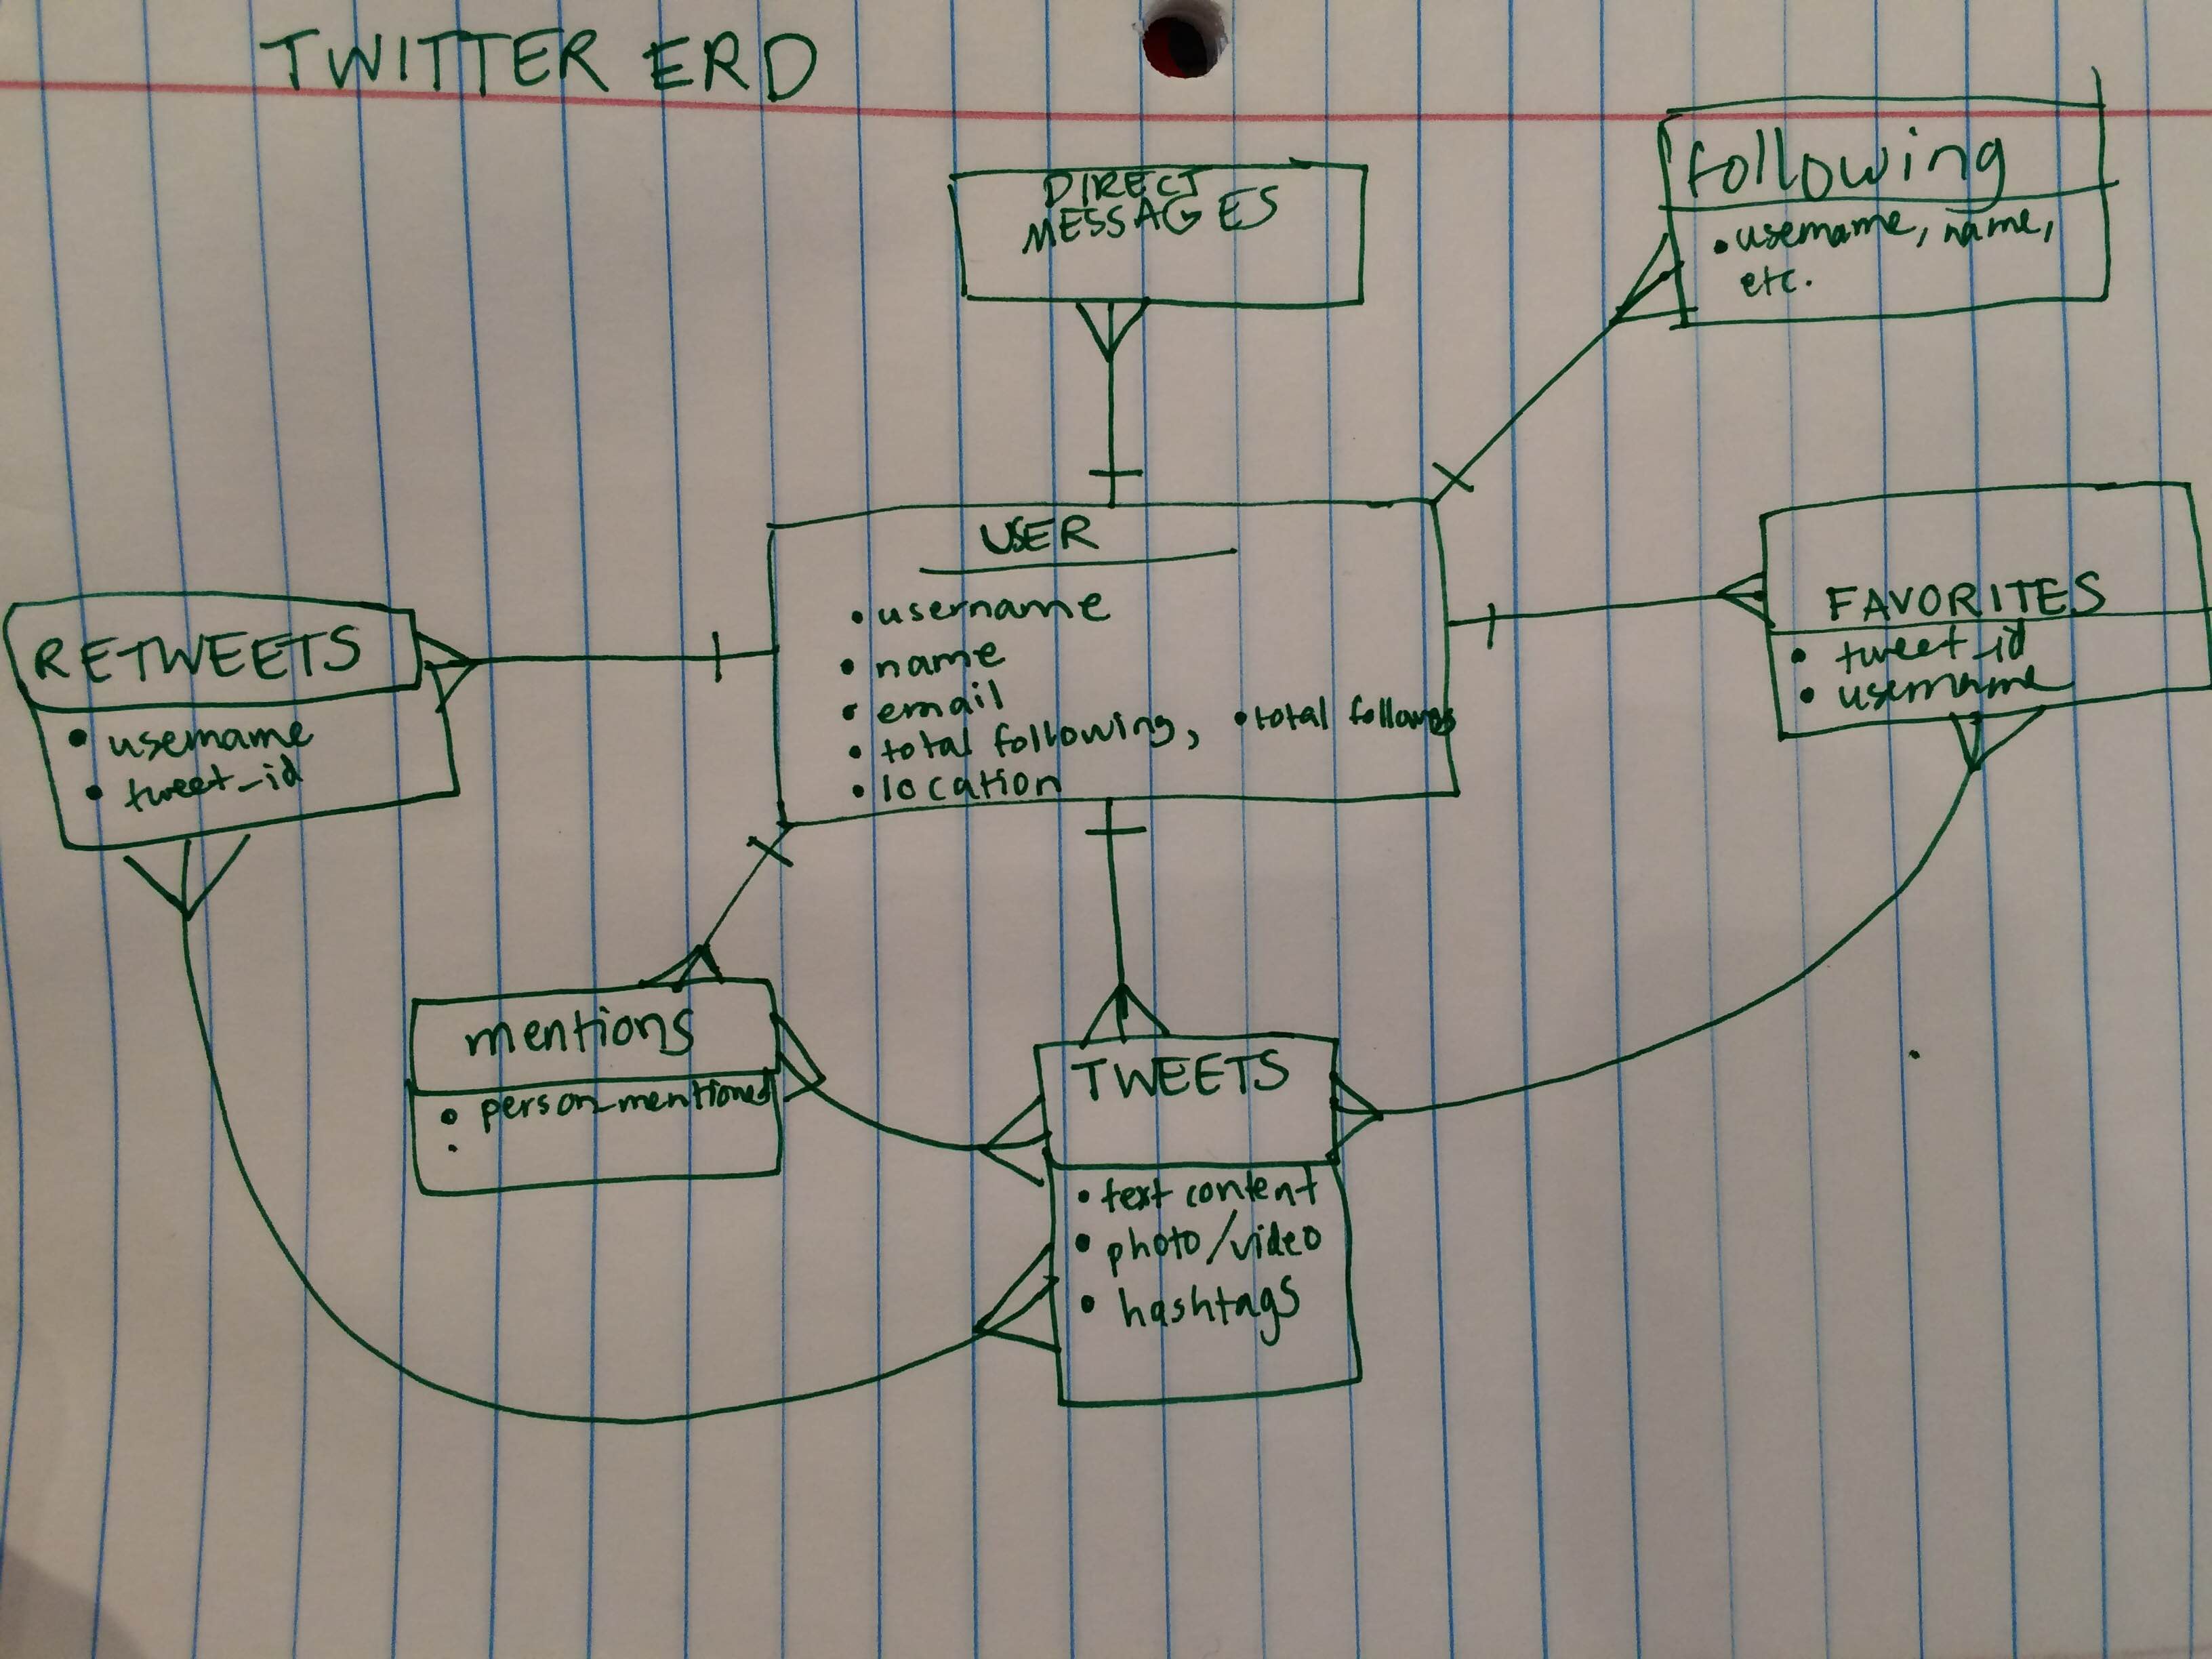 TWITTER ERD
DIRECT
MESSAGES
following
• username, name,
etc.
USER
• username
• name
• email
• total following, • total follows
• location
FAVORITES
• tweet_id
• username
RETWEETS
• username
• tweet_id
mentions
• person-mentioned
•
TWEETS
• text content
• photo/video
• hashtags